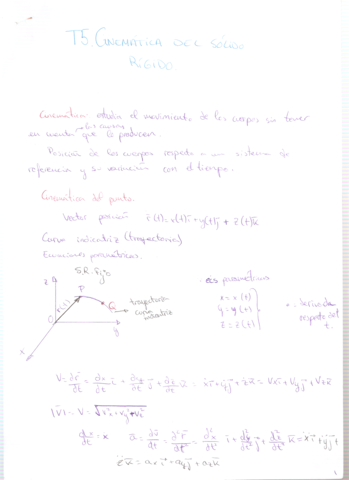 T5. CINEMÁTICA DEL SÓLIDO
RÍGIDO.
Cinemática: estudia el movimiento de los cuerpos sin tener
las causas
en cuenta que lo producen
Posición de los cuerpos respecto a un sistema de
referencia y su variación con el tiempo.
Cinemática del punto.
Vector posición r(t) = x(t)i + y(t)j + z(t)k
Curva indicatriz (trayectoria)
Ecuaciones paramétricas.
S.R. fijo
z
P
r(t)
O
y
x
trayectoria
curva
indicatriz
ecs paramétricas
x = x(t)
y = y(t)
z = z(t)
derivadas
respecto del
t.
V = dr/dt = dx/dt i + dy/dt j + dz/dt k = ẋi + ẏj + żk = Vxi + Vyj + Vzk
|V| = V = √Vx² + Vy² + Vz²
dx/dt = ẋ a = dv/dt = d²r/dt² = d²x/dt² i + d²y/dt² j + d²z/dt² k = ẍi + ÿj +
z̈k = axi + ayj + azk